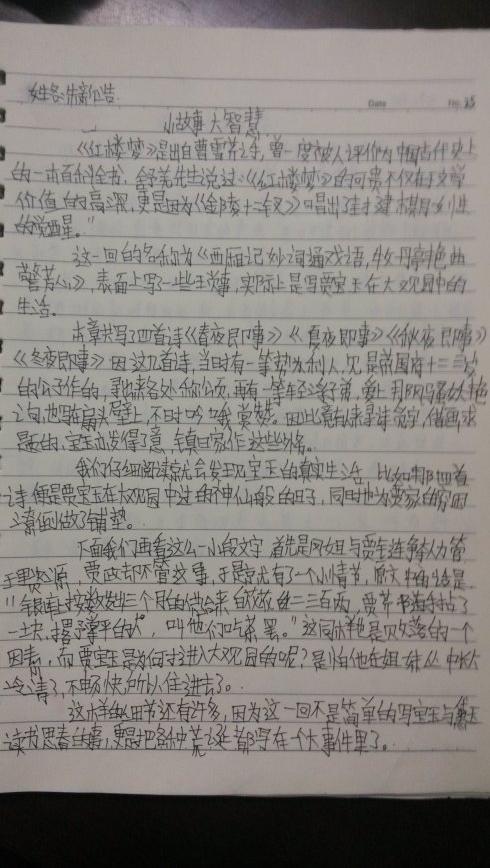 姓名:
Date No. 25
小故事大智慧
《红楼梦》是出自曹雪芹之手,曾一度被人评价为中国古代史上
的一本百科全书,舒芜先生说过:《红楼梦》的可贵不仅在于文学
价值的高深,更是因为《金陵十二钗》唱出了封建模具女性
的觉醒星。"
这一回的名称为《西厢记妙词通戏语,牡丹亭艳曲
警芳心》,表面上写了一些琐事,实际上是写贾宝玉在大观园中的
生活。
本章共写了四首诗《春夜即事》《夏夜即事》《秋夜即事》
《冬夜即事》因这几首诗,当时有一等势力利人,见是荣国府十二三岁
的公子作的,录出来各处称颂,再有一等轻浮子弟,爱上那风骚妖艳
之句,也写在扇头壁上,不时吟哦赏赞。因此竟有人来寻诗觅字,倩画求
题的,宝玉亦发得了意,镇日家作这些外务。
我们仔细阅读就会发现宝玉的真实生活,比如那四首
诗便是贾宝玉在大观园中过的神仙般的日子,同时也为贾家的穷困
潦倒做了铺垫。
下面我们再看这么一小段文字,首先是凤姐与贾琏争人力管
理资源,贾政却不管这事,于是就有了一个小情节,原文中的话是
"银库按数发出三个月的供给来,白花花二三百两,贾芹随手拈了
一块,撂予掌平的人,叫他们吃茶罢。"这同样也是败落的一个
因素,而贾宝玉是为何才进入大观园的呢?是怕他在姐妹丛中长大
冷清了,不畅快,所以住进去了。
这样的细节还有许多,因为这一回不是简单的写宝玉与黛玉
读书思春的事,更是把各种荒诞都写在一个大事件里了。